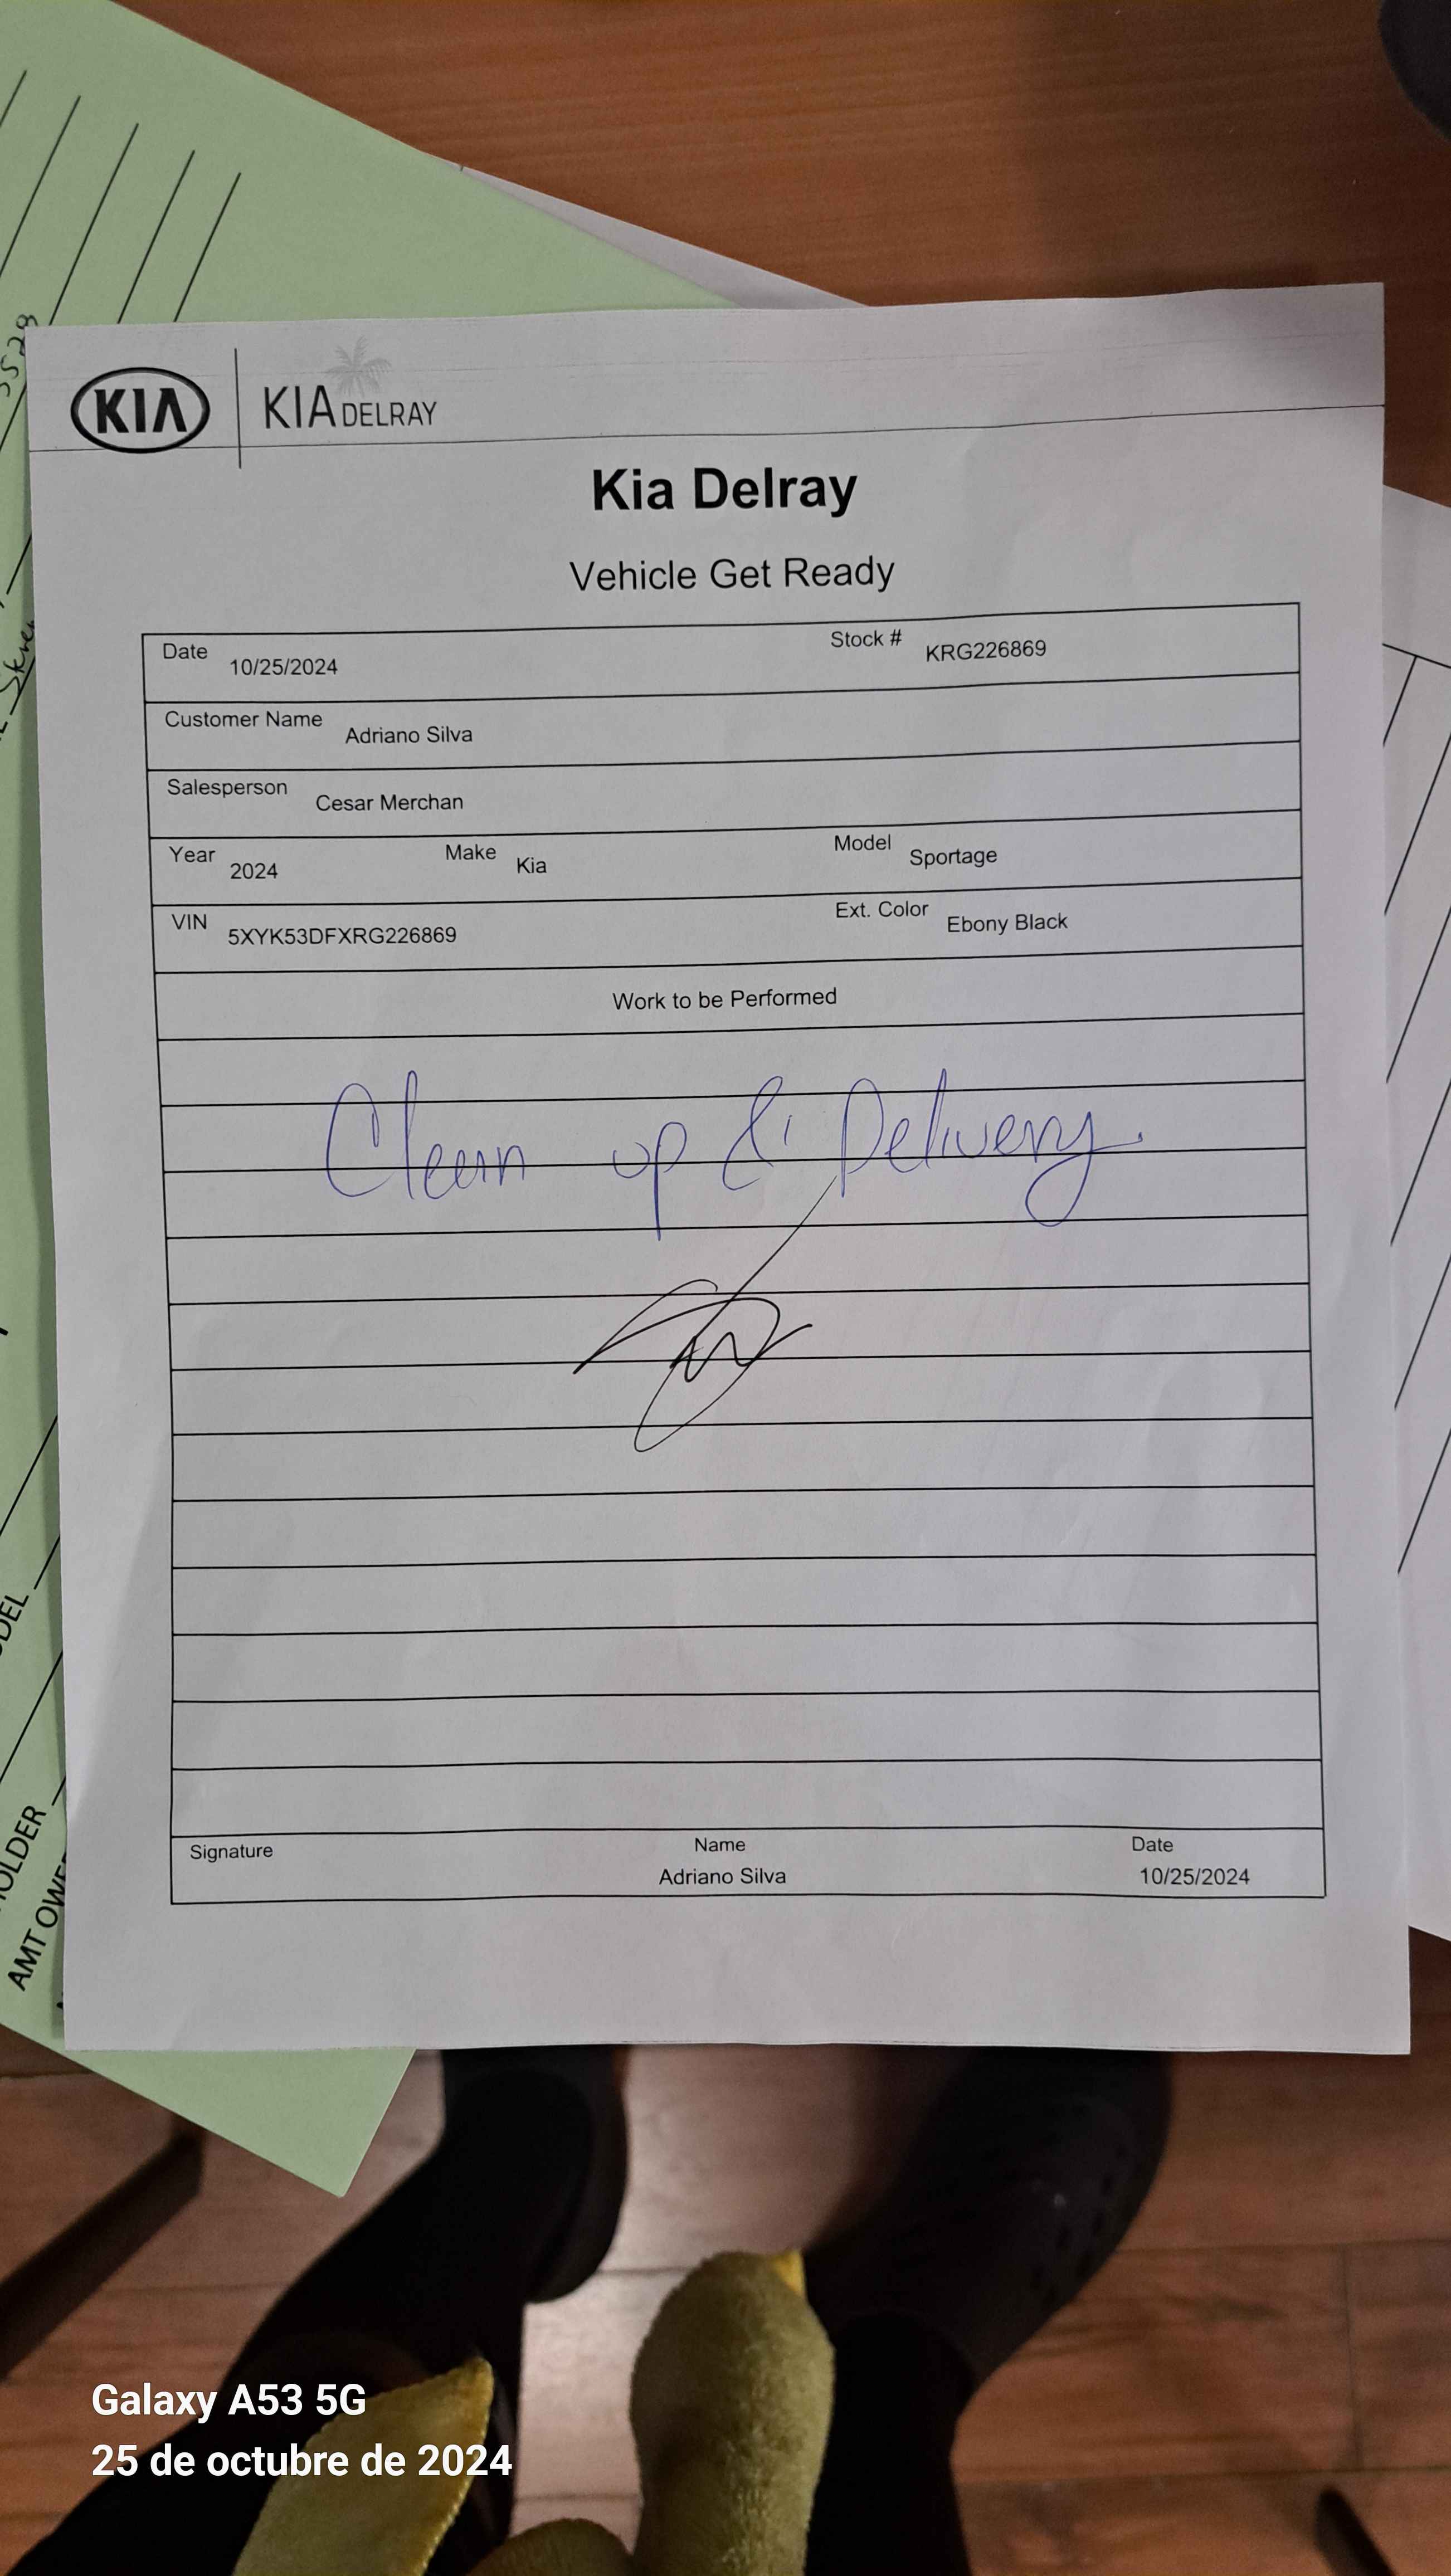 KIA KIA DELRAY
Kia Delray
Vehicle Get Ready
Date 10/25/2024 Stock # KRG226869
Customer Name Adriano Silva
Salesperson Cesar Merchan
Year 2024 Make Kia Model Sportage
VIN 5XYK53DFXRG226869 Ext. Color Ebony Black
Work to be Performed
Clean up & Delivery.
Signature Name Date
Adriano Silva 10/25/2024
AMT OWE
Galaxy A53 5G
25 de octubre de 2024